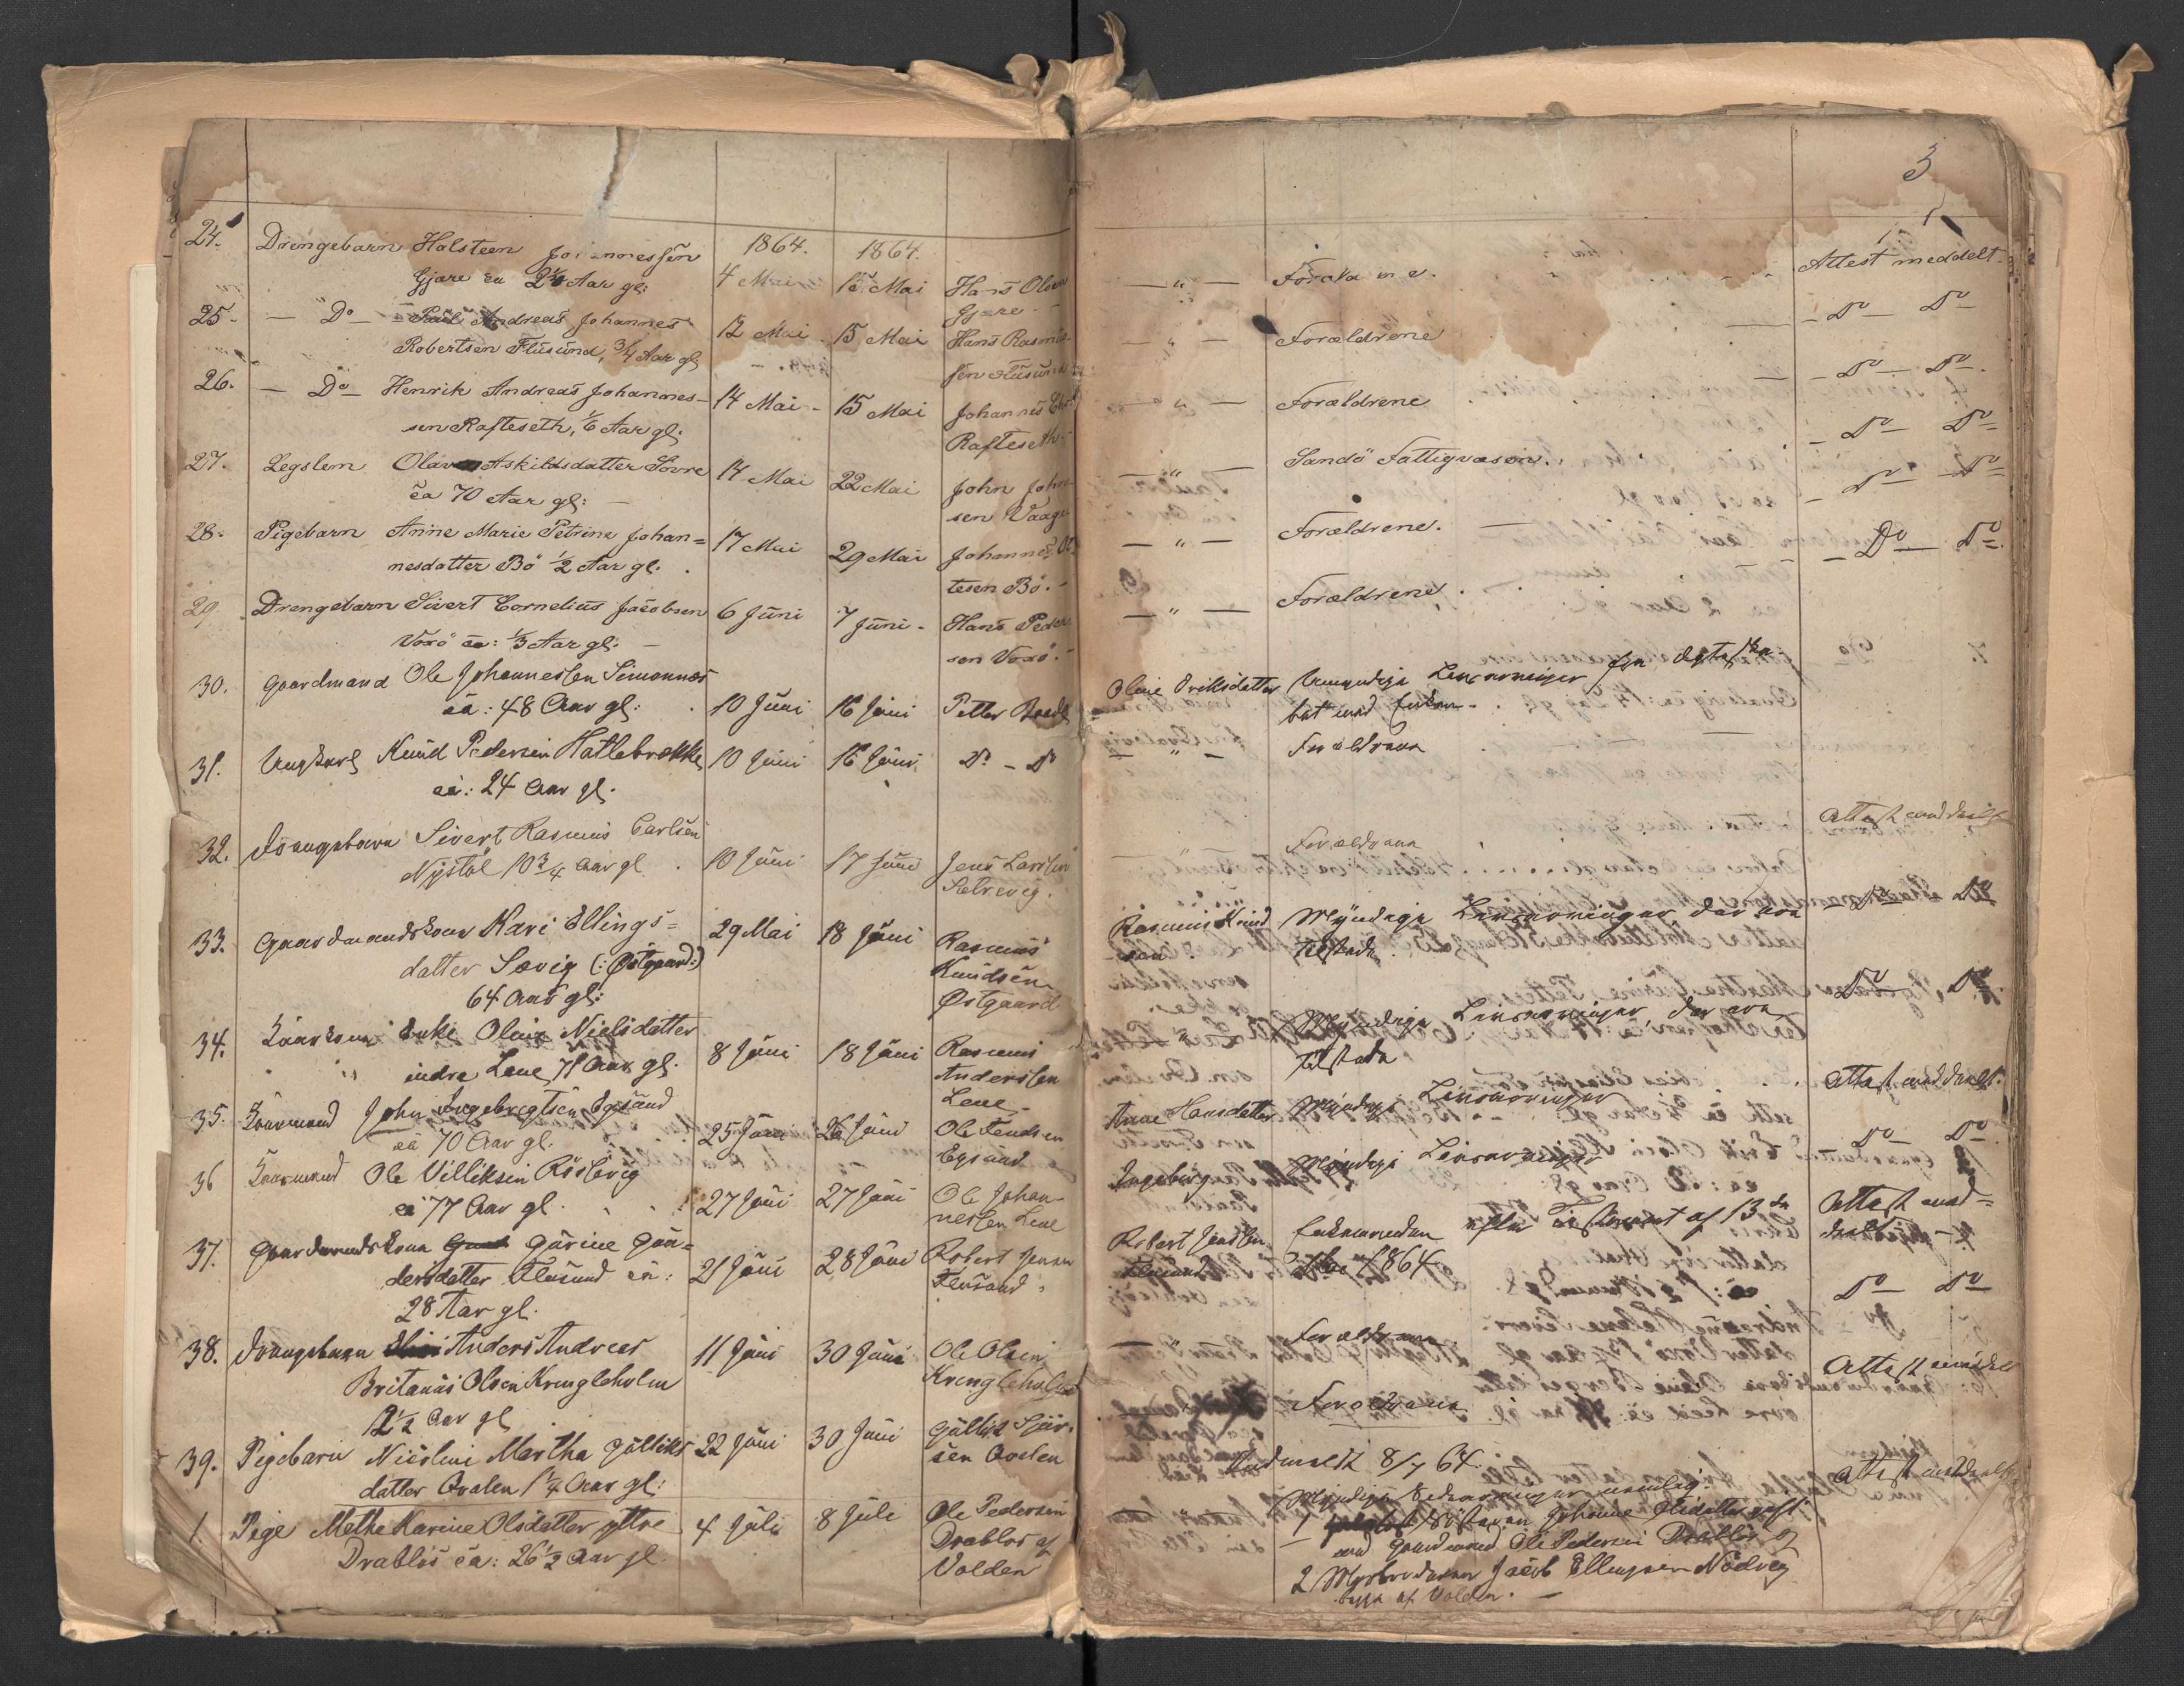 3
24. Drengebarn Halsteen Johannessen
Gjøre ca 2½ Aar gl:
1864. 4 Mai
1864. 15 Mai
Hans Olsen
Gjøre.
— " —
Forældrene.
Attest meddelt.
25. — Do — Paul Andreas Johannes
Robertsen Flusund, ¾ Aar gl.
12 Mai
15 Mai
Hans Rasmus-
sen Flusund
— " —
Forældrene
— Do — Do
26. — Do — Henrik Andreas Johannes-
sen Rafteseth, 1/6 Aar gl.
14 Mai
15 Mai
Johannes
Rafteseth
— " —
Forældrene
— Do — Do.
27. Legslem Olave Askildsdatter Sövre
ca 70 Aar gl: —
14 Mai
22 Mai
John John-
sen Vaage
— " —
Sandö Fattigvæsen.
— Do — Do
28. Pigebarn Anne Marie Petrine Johan=
nesdatter Bö ½ Aar gl.
17 Mai
29 Mai
Johannes
tesen Bö. —
— " —
Forældrene.
— Do — Do
29. Drengebarn Sivert Cornelius Jacobsen
Voxö ca: ⅓ Aar gl. —
6 Juni
7 Juni
Hans Peder-
sen Voxö. —
— " —
Forældrene.
— Do — Do.
30. Gaardmand Ole Johannessen Simonnæs
ca: 48 Aar gl:
10 Juni
16 Juni
Petter
Oline Eriksdatter
Umyndige Livsarvinger fra Ægteska-
bet med Enken.
31. Ungkarl Knud Pedersen Hatlebrække
ca: 24 Aar gl.
10 Juni
16 Juni
Do — Do
— " —
Forældrene
32. Drengebarn Sivert Rasmus Carlsen
Nystöl 10¾ Aar gl.
10 Juni
17 Juni
Jens Larssen
Sætrevig.
Forældrene
Attest meddeelt
33. Gaardmandskone Kari Ellings=
datter Sævig (: Østgaard :)
64 Aar gl:
29 Mai
18 Juni
Rasmus
Knudsen
Østgaard
Rasmus Knud
sen
Myndige Livsarvinger der ere
tilstede.
Do Do
34. Kaarkone Enke Oline Nielsdatter
indre Lene, 71 Aar gl.
8 Juni
18 Juni
Rasmus
Anderssen
Lene
"
Myndige Livsarvinger, der ere
tilstede
Do Do
35. Kaarmand John Ingebregtsen Egsund
ca 70 Aar gl.
25 Juni
26 Juni
Ole
Egsund
Anne Hansdatter
Myndige Livsarvinger
Attest meddeelt.
36 Kaarmand Ole Villiksen Röslevig
ca 77 Aar gl.
27 Juni
27 Juni
Ole Johan-
nessen Lene
Ingeborg
Myndige Livsarvinger
Do Do
37. Gaardmandskone Gurine Gun=
dersdatter Flusund ca:
28 Aar gl.
21 Juni
28 Juni
Robert Jensen
Flusund.
Robert Jensen
Flusund
Enkemanden efter Testament af 13de
1864
Attest med=
deelt
Do Do
38. Drengebarn Anders Andreas
Britanus Olsen Kringleholm
12½ Aar gl.
11 Juni
30 Juni
Ole Olsen
Kringleholm
"
Forældrene
Attest meddel
39. Pigebarn Nicoline Martha Gulliks
datter Qvalen 1¼ Aar gl:
22 Juni
30 Juni
Gullik Sjur-
sen Qvalen
Forældrene
Indmeldt 8/7 64.
Attest meddeelt
1. Pige Methe Karine Olsdatter yttre
Drabløs ca: 26½ Aar gl.
4 Juli
8 Juli
Ole Pedersen
Drablös af
Volden
Myndige Udarvinger nemlig:
1 Søsteren Johanne Olsdatter gift
med Gaardmand Ole Pedersen Drabløs og
2 Morbroderen Jacob Ellingsen Nödveg
begge af Volden. —